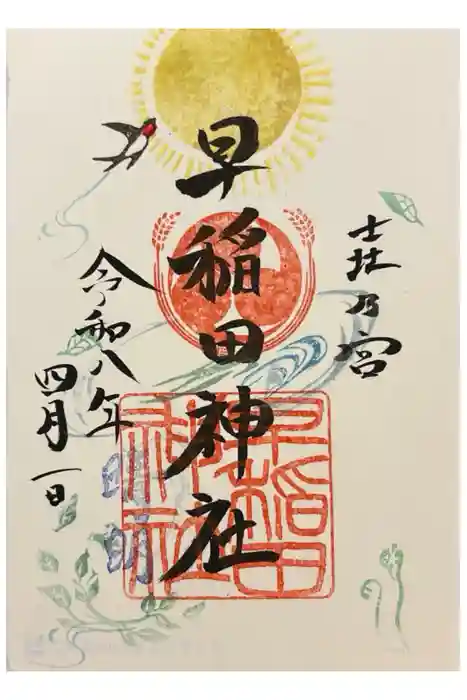 乃宮
早稲田神社
早稲田
神社
令和八年
四月一日